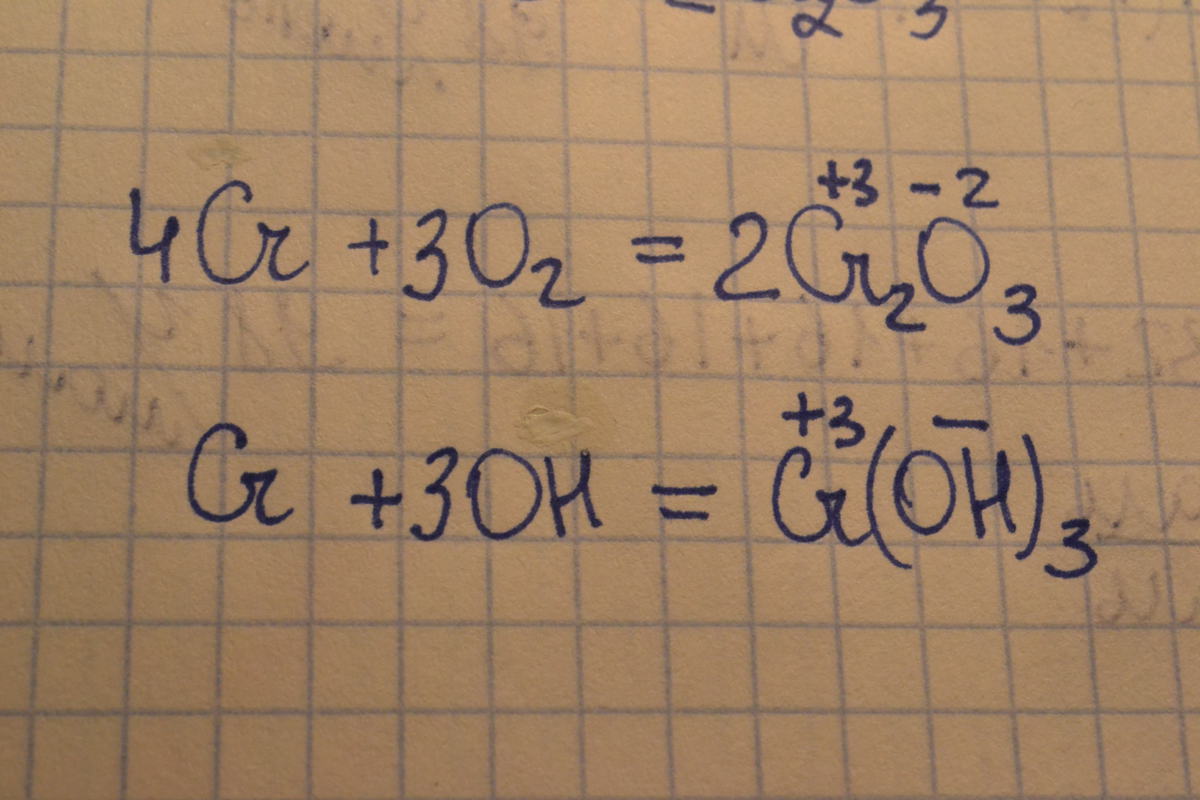 2 3
4Cr + 3O₂ = 2Cr₂⁺³O₃⁻²
Cr + 3OH = Cr⁺³(OH)₃⁻